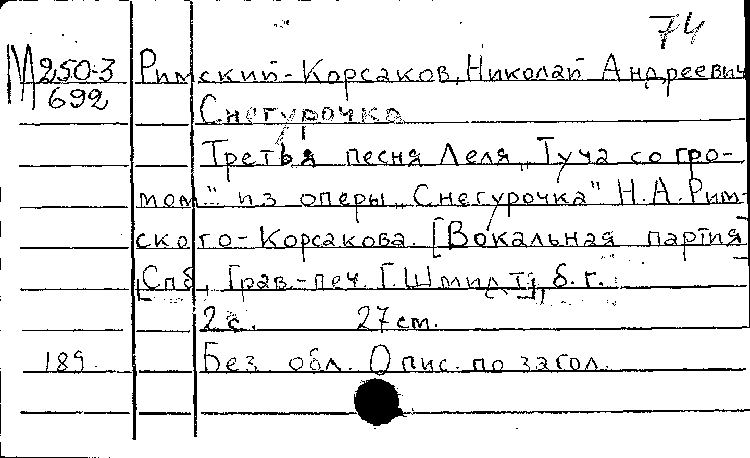 74
М 250-3 Римский-Корсаков, Николай Андреевич
692
Снегурочка
Третья песня Леля „Туча со гро-
мом" из оперы „Снегурочка" Н.А. Рим-
ского-Корсакова. [Вокальная партия]
[Спб., Грав.-печ. Г. Шмидт], б.г.
2 с. 27 cm.
189. Без обл. Опис. по загол.